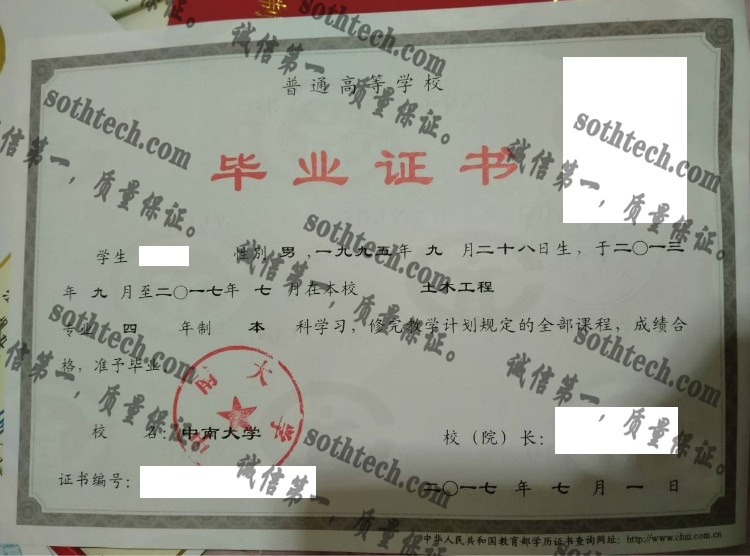 普通高等学校
毕业证书
学生 性别 男,一九九五年 九 月二十八日生,于二〇一三
年 九 月至二〇一七年 七 月在本校 土木工程
专业 四 年制 本 科学习,修完教学计划规定的全部课程,成绩合
格,准予毕业。
中南大学
校 名:中南大学 校(院)长:
证书编号: 二〇一七 年 七 月 一 日
中华人民共和国教育部学历证书查询网址:http://www.chsi.com.cn
sothtech.com
诚信第一,质量保证。
sothtech.com
诚信第一,质量保证。
sothtech.com
诚信第一,质量保证。
sothtech.com
诚信第一,质量保证。
sothtech.com
诚信第一,质量保证。
sothtech.com
诚信第一,质量保证。
sothtech.com
诚信第一,质量保证。